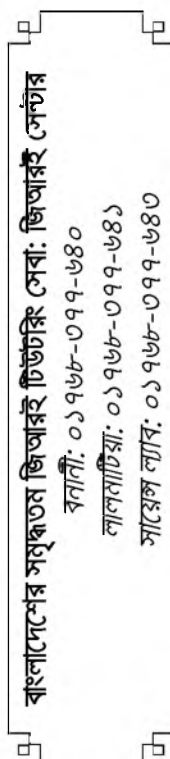 বাংলাদেশের সমৃদ্ধতম জিআরই টিউটরিং সেবা: জিআরই সেন্টার
বনানী: ০১৭৬৮-৩৭৭-৬৪০
লালমাটিয়া: ০১৭৬৮-৩৭৭-৬৪১
সায়েন্স ল্যাব: ০১৭৬৮-৩৭৭-৬৪৩